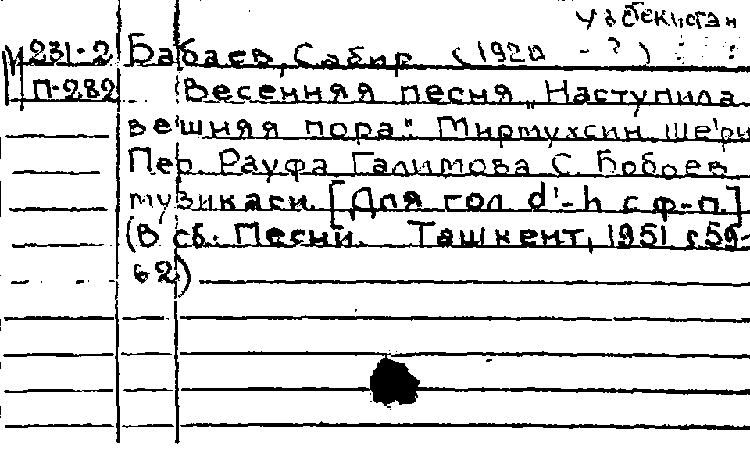 Узбекистан
М231-2 Бабаев, Сабир (1920 - ? )
П-282 Весенняя песня „Наступила
вешняя пора". Миртухсин. шеъри
Пер. Рауфа Галимова С. Бобоев
музикаси. [Для гол d'-h с ф-п.]
(В сб.: Песни. Ташкент, 1951 с59-
62)